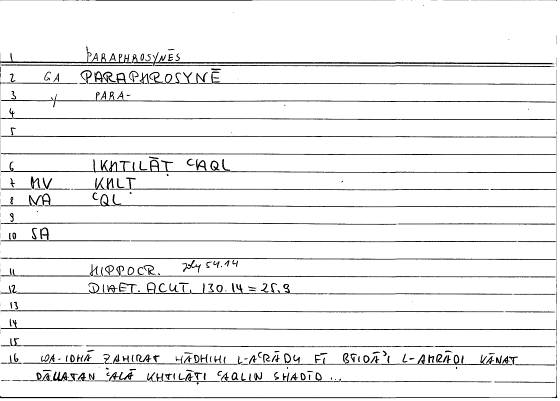 1 PARAPHROSYNĒS
2 GA PARAPHROSYNĒ
3 y PARA-
4
5
6 IKHTILĀṬ ʿAQL
7 MV KHLṬ
8 NA ʿQL
9
10 SA
11 HIPPOCR. 54.14
12 DIAET. ACUT. 130.14 = 25.9
13
14
15
16 WA-IDHĀ ẒAHIRAT HĀDHIHI L-AʿRĀḌU FĪ BTIDĀʾI L-AMRĀḌI KĀNAT
DĀLLATAN ʿALĀ KHTILĀṬI ʿAQLIN SHADĪD ...